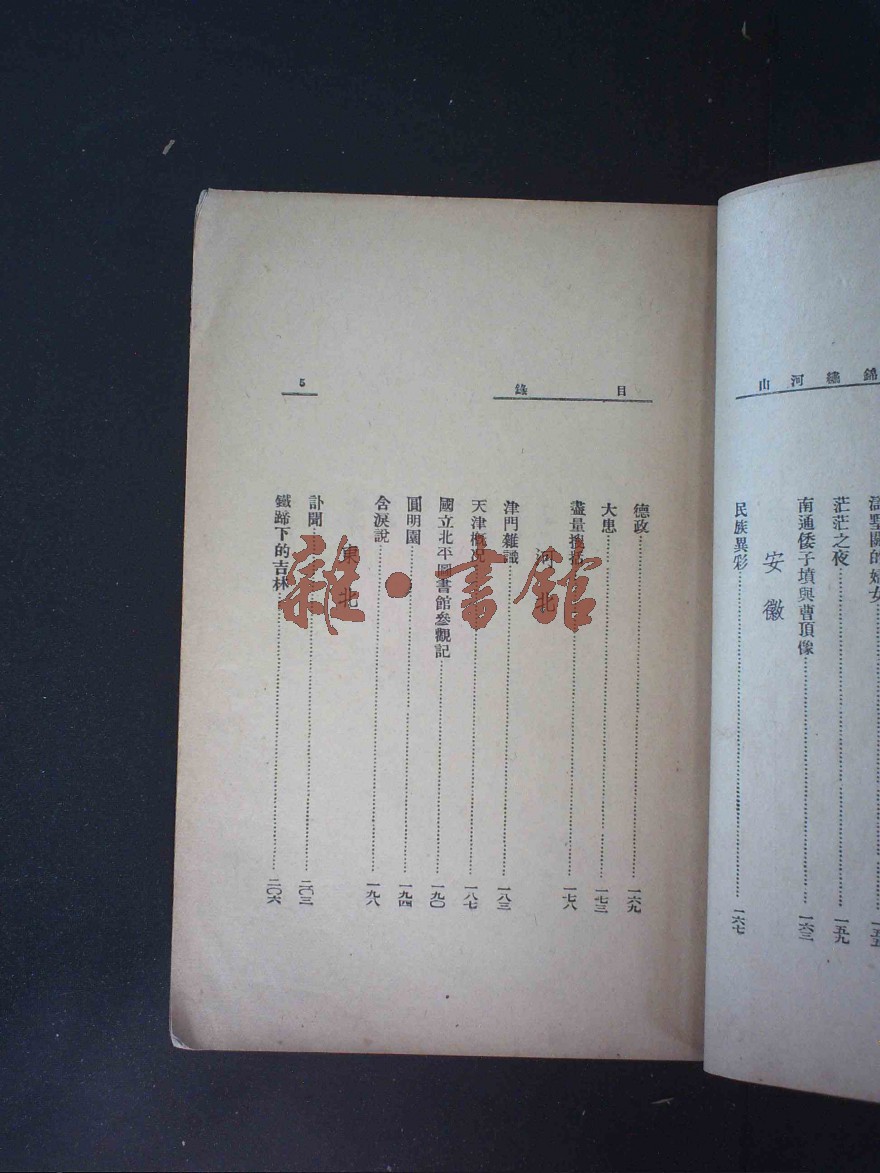 錦繡河山
茫茫之夜……一五九
南通倭子墳與曹頂像……一六三
安徽
民族異彩……一六七
目錄
5
德政……一六九
大患……一七三
盡量搜括……一七八
河北
津門雜識……一八三
天津概況……一八七
國立北平圖書館參觀記……一九〇
圓明園……一九四
含淚說……一九八
東北
訃聞……二〇三
鐵蹄下的吉林……二〇六
雜·書館